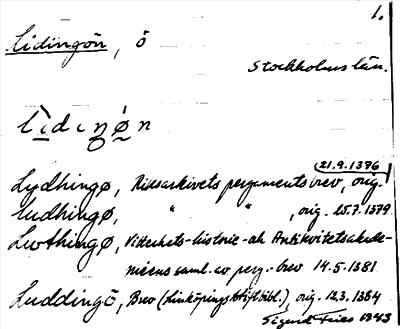 1.
Lidingön, ö
Stockholms län.
lìdiŋøn
21.9.1376
Lydhingø, Riksarkivets pergamentsbrev, orig.
Ludhingø, " " , orig. 25.7.1379
Lwthingø, Vitterhets-historie-ah Antikvitetsakade-
miens saml. av perg.-brev 14.5.1381
Luddingø, Brev (Linköpings Stiftsbibl.), orig. 12.3.1384
Sigurd Fries 1943